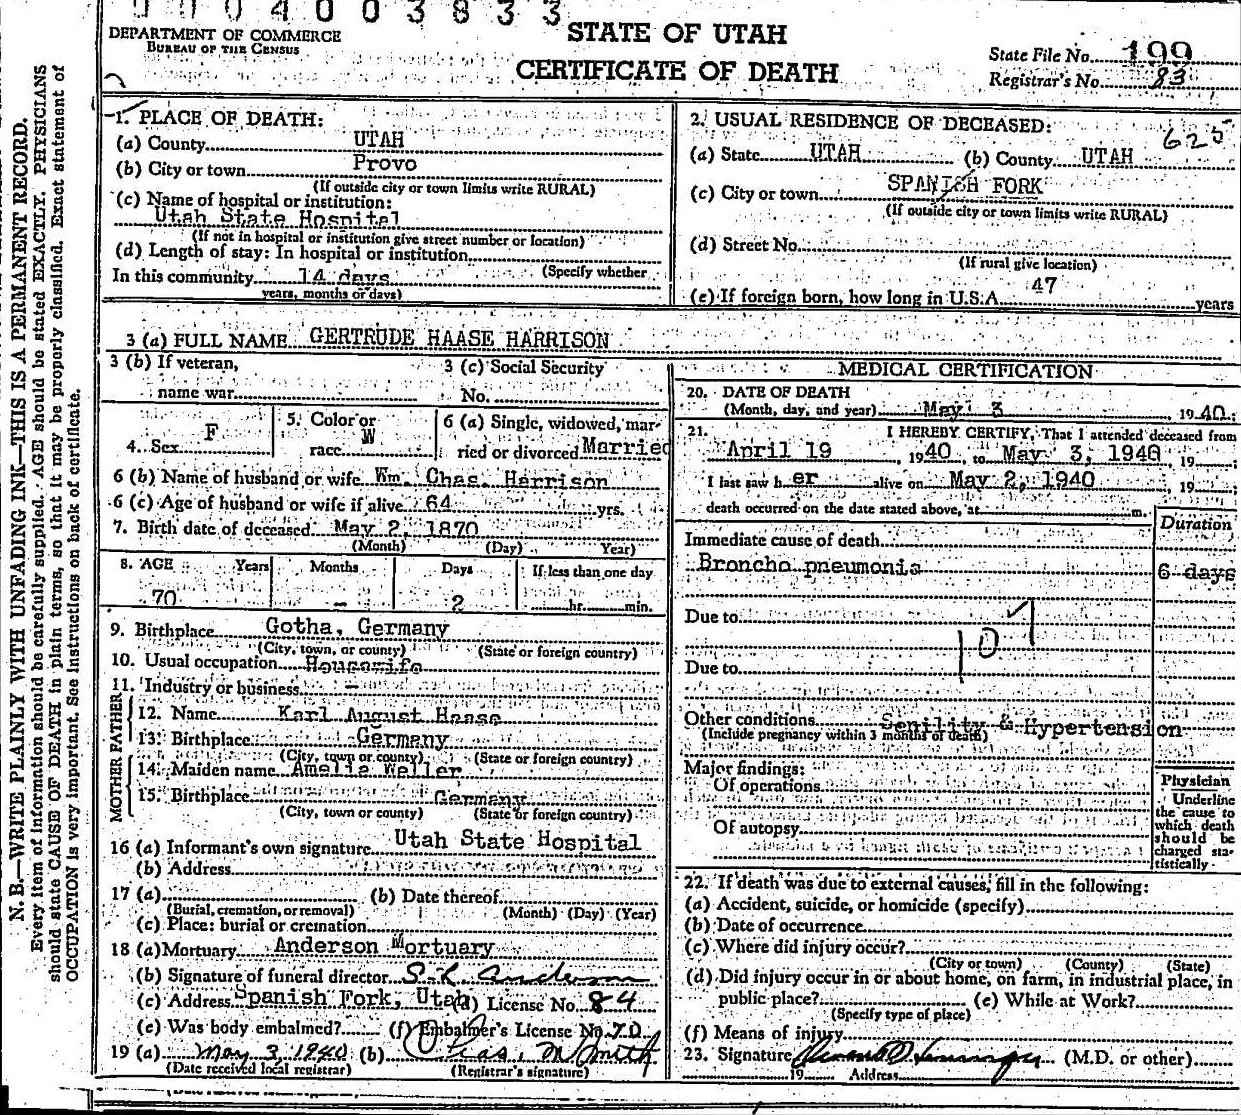 0 0 0 4 0 0 3 8 3 3
DEPARTMENT OF COMMERCE
BUREAU OF THE CENSUS
STATE OF UTAH
CERTIFICATE OF DEATH
State File No. 199
Registrar's No. 83
N. B.—WRITE PLAINLY WITH UNFADING INK—THIS IS A PERMANENT RECORD.
Every item of information should be carefully supplied. AGE should be stated EXACTLY. PHYSICIANS
should state CAUSE OF DEATH in plain terms, so that it may be properly classified. Exact statement of
OCCUPATION is very important. See instructions on back of certificate.
1. PLACE OF DEATH:
(a) County UTAH
(b) City or town Provo
(If outside city or town limits write RURAL)
(c) Name of hospital or institution:
Utah State Hospital
(If not in hospital or institution give street number or location)
(d) Length of stay: In hospital or institution
(Specify whether
In this community 14 days
years, months or days)
2. USUAL RESIDENCE OF DECEASED: 625
(a) State UTAH (b) County UTAH
(c) City or town SPANISH FORK
(If outside city or town limits write RURAL)
(d) Street No.
(If rural give location)
(e) If foreign born, how long in U.S.A. 47 years
3 (a) FULL NAME GERTRUDE HAASE HARRISON
3 (b) If veteran,
name war
3 (c) Social Security
No.
4. Sex F
5. Color or
race W
6 (a) Single, widowed, mar-
ried or divorced Married
6 (b) Name of husband or wife Wm. Chas. Harrison
6 (c) Age of husband or wife if alive 64 yrs.
7. Birth date of deceased May 2, 1870
(Month) (Day) Year)
8. AGE Years Months Days If less than one day
70 - 2 hr. min.
9. Birthplace Gotha, Germany
(City, town, or county) (State or foreign country)
10. Usual occupation Housewife
11. Industry or business -
FATHER
12. Name Karl August Haase
13. Birthplace Germany
(City, town or county) (State or foreign country)
MOTHER
14. Maiden name Amelia Weller
15. Birthplace Germany
(City, town or county) (State or foreign country)
16 (a) Informant's own signature Utah State Hospital
(b) Address
17 (a) (b) Date thereof
(Burial, cremation, or removal) (Month) (Day) (Year)
(c) Place: burial or cremation
18 (a) Mortuary Anderson Mortuary
(b) Signature of funeral director
(c) Address Spanish Fork, Utah (d) License No. 84
(e) Was body embalmed? (f) Embalmer's License No. 70
19 (a) May 3, 1940 (b) Chas. M Smith
(Date received local registrar) (Registrar's signature)
MEDICAL CERTIFICATION
20. DATE OF DEATH
(Month, day, and year) May 3, 1940;
21. I HEREBY CERTIFY, That I attended deceased from
April 19, 1940, to May 3, 1940, 19 ;
I last saw her alive on May 2, 1940, 19 ;
death occurred on the date stated above, at m.
Duration
Immediate cause of death
Broncho pneumonia 6 days
Due to
107
Due to
Other conditions Senility & Hypertension
(Include pregnancy within 3 months of death)
Major findings:
Of operations
Of autopsy
Physician
Underline
the cause to
which death
should be
charged sta-
tistically
22. If death was due to external causes, fill in the following:
(a) Accident, suicide, or homicide (specify)
(b) Date of occurrence
(c) Where did injury occur?
(City or town) (County) (State)
(d) Did injury occur in or about home, on farm, in industrial place, in
public place? (e) While at Work?
(Specify type of place)
(f) Means of injury
23. Signature (M.D. or other)
19 Address